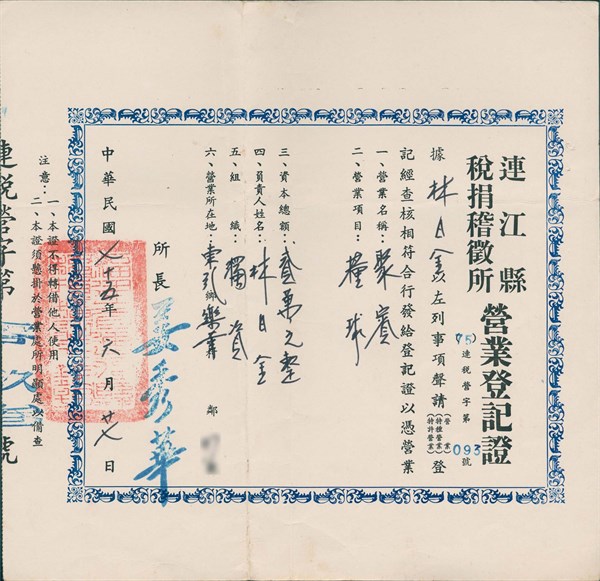 連江縣稅捐稽徵所 營業登記證
75連稅營字第093號
據林日金以左列事項聲請(營業)(特種營業)(特許營業)登
記經查核相符合行發給登記證以憑營業
一、營業名稱：聚賓
二、營業項目：撞球
三、資本總額：貳萬元整
四、負責人姓名：林日金
五、組織：獨資
六、營業所在地：東引鄉樂華 鄰
所長 秀華
中華民國七十五年六月廿七日
注意：一、本證不得轉借他人使用
二、本證須懸掛於營業處所明顯處以備查
連稅營字第 號